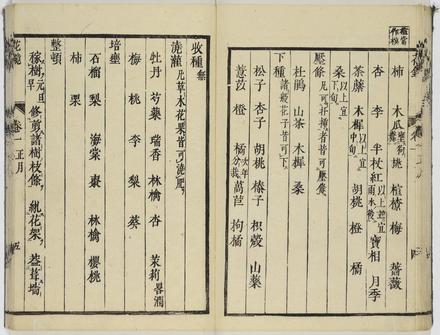 柿 木瓜 桃 榲桲 梅 薔薇
杏 李 半杖紅 以上並宜雨水後 寶相 月季
荼蘼 木樨 以上宜中旬 胡桃 橙 橘
桑 以上宜下旬
壓條 凡可扦插者皆可壓條
杜鵑 山茶 木樨 桑
下種 諸般花子皆可下
松子 杏子 胡桃 榛子 枳殼 山藥
薏苡 橙 橘 萵苣 枸橘
收種 無
澆灌 凡草木花果皆可澆肥
牡丹 芍藥 瑞香 林檎 杏 茉莉 畧潤
梅 桃 李 梨 葵
培壅
石榴 梨 海棠 棗 林檎 櫻桃
柿 栗
整頓
稼樹 元旦早 修剪諸樹枝條 紮花架 葢葺墻
花鏡 卷一 正月 五